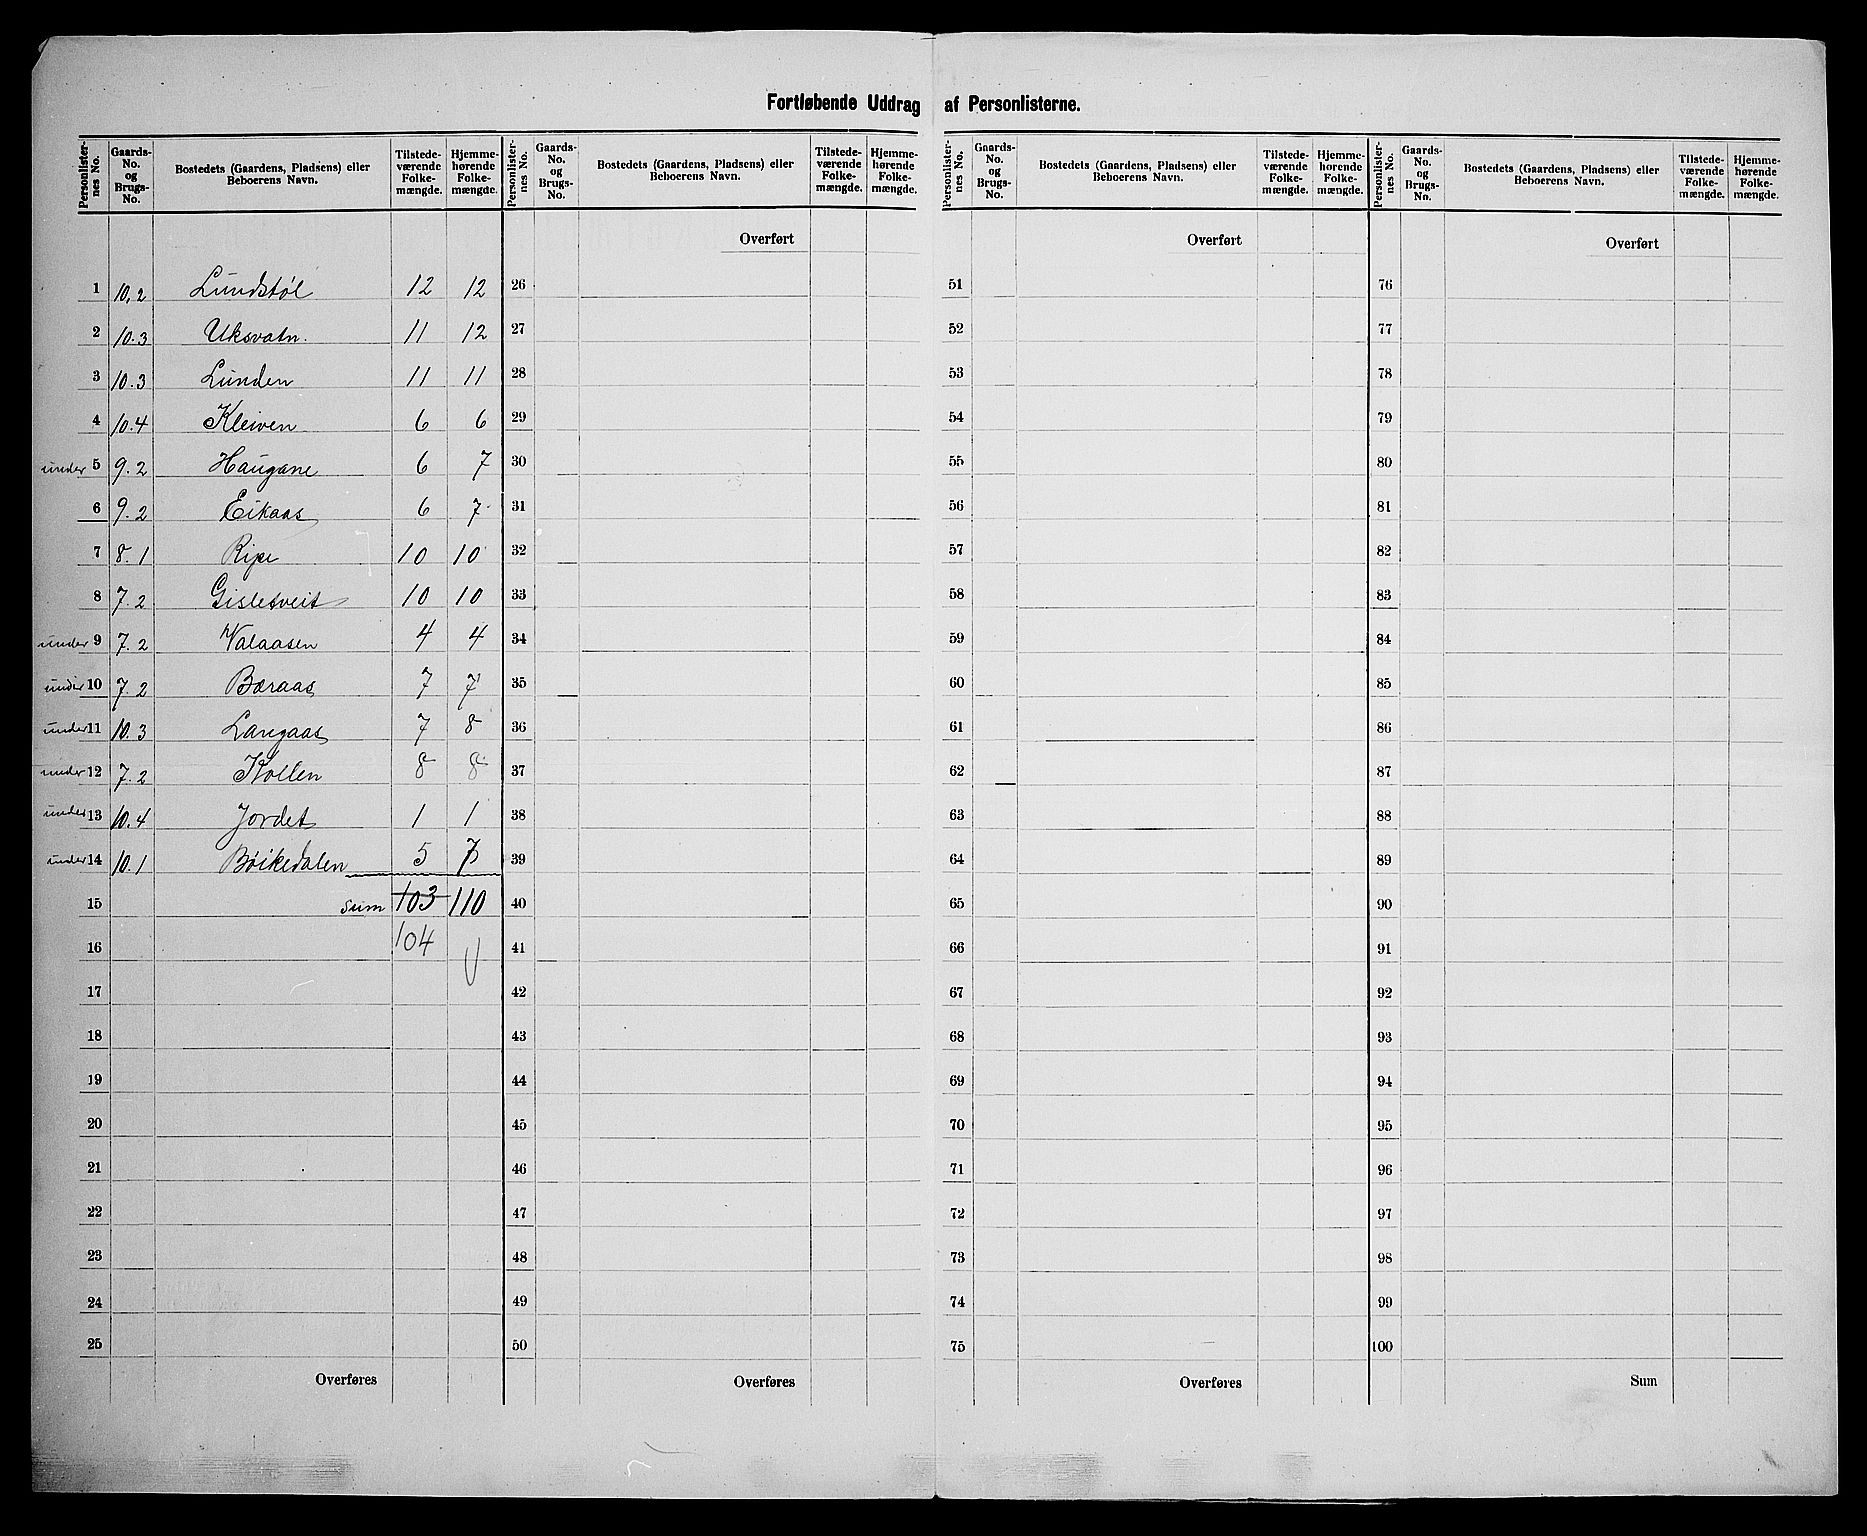 Fortløbende Uddrag af Personlisterne.
Personlister-nes No. | Gaards-No. og Brugs-No. | Bostedets (Gaardens, Pladsens) eller Beboerens Navn. | Tilstede-værende Folke-mængde. | Hjemme-hørende Folke-mængde. | Personlister-nes No. | Gaards-No. og Brugs-No. | Bostedets (Gaardens, Pladsens) eller Beboerens Navn. | Tilstede-værende Folke-mængde. | Hjemme-hørende Folke-mængde. | Personlister-nes No. | Gaards-No. og Brugs-No. | Bostedets (Gaardens, Pladsens) eller Beboerens Navn. | Tilstede-værende Folke-mængde. | Hjemme-hørende Folke-mængde. | Personlister-nes No. | Gaards-No. og Brugs-No. | Bostedets (Gaardens, Pladsens) eller Beboerens Navn. | Tilstede-værende Folke-mængde. | Hjemme-hørende Folke-mængde.
Overført Overført Overført
1 10,2 Lundstøl 12 12 26 51 76
2 10.3 Uksvatn. 11 12 27 52 77
3 10.3 Lunden 11 11 28 53 78
4 10.4 Kleiven 6 6 29 54 79
under 5 9.2 Haugane 6 7 30 55 80
6 9.2 Eikaas 6 7 31 56 81
7 8.1 Ripe 10 10 32 57 82
8 7.2 Gisletveit 10 10 33 58 83
under 9 7.2 Valaasen 4 4 34 59 84
under 10 7.2 Bæraas 7 7 35 60 85
under 11 10.3 Langaas 7 8 36 61 86
under 12 7.2 Kollen 8 8 37 62 87
under 13 10.4 Jordet 1 1 38 63 88
under 14 10.1 Bøikedalen 5 7 39 64 89
15 sum 103 110 40 65 90
16 104 41 66 91
17 42 67 92
18 43 68 93
19 44 69 94
20 45 70 95
21 46 71 96
22 47 72 97
23 48 73 98
24 49 74 99
25 50 75 100
Overføres Overføres Overføres Sum